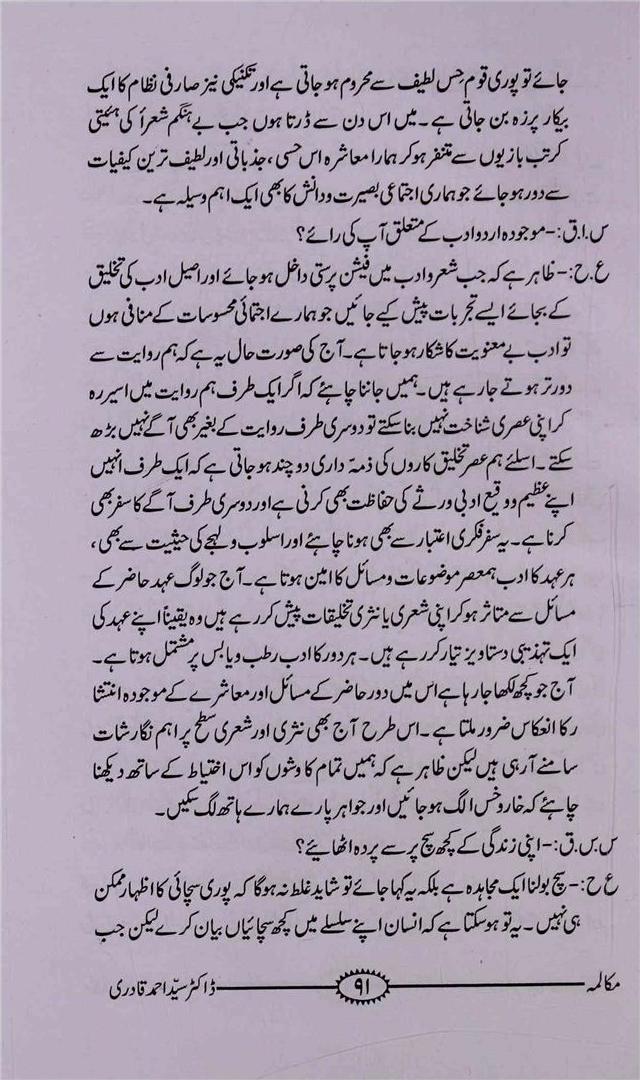 جائے تو پوری قوم حِس لطیف سے محروم ہو جاتی ہے اور تکنیکی نیز صارفی نظام کا ایک
بیکار پرزہ بن جاتی ہے۔ میں اس دن سے ڈرتا ہوں جب بے ہنگم شعرأ کی ہئیتی
کرتب بازیوں سے متنفر ہو کر ہمارا معاشرہ اس حسی، جذباتی اور لطیف ترین کیفیات
سے دور ہو جائے جو ہماری اجتماعی بصیرت و دانش کا بھی ایک اہم وسیلہ ہے۔
س.ا.ق:- موجودہ اردو ادب کے متعلق آپ کی رائے؟
ع.ح:- ظاہر ہے کہ جب شعر و ادب میں فیشن پرستی داخل ہو جائے اور اصیل ادب کی تخلیق
کے بجائے ایسے تجربات پیش کیے جائیں جو ہمارے اجتمائی محسوسات کے منافی ہوں
تو ادب بے معنویت کا شکار ہو جاتا ہے۔ آج کی صورت حال یہ ہے کہ ہم روایت سے
دور تر ہوتے جا رہے ہیں۔ ہمیں جاننا چاہئے کہ اگر ایک طرف ہم روایت میں اسیر رہ
کر اپنی عصری شناخت نہیں بنا سکتے تو دوسری طرف روایت کے بغیر بھی آگے نہیں بڑھ
سکتے۔ اسلئے ہم عصر تخلیق کاروں کی ذمہّ داری دو چند ہو جاتی ہے کہ ایک طرف انہیں
اپنے عظیم و وقیع ادبی ورثے کی حفاظت بھی کرنی ہے اور دوسری طرف آگے کا سفر بھی
کرنا ہے۔ یہ سفر فکری اعتبار سے بھی ہونا چاہئے اور اسلوب و لہجے کی حیثیت سے بھی،
ہر عہد کا ادب ہمعصر موضوعات و مسائل کا امین ہوتا ہے۔ آج جو لوگ عہد حاضر کے
مسائل سے متاثر ہو کر اپنی شعری یا نثری تخلیقات پیش کر رہے ہیں وہ یقیناً اپنے عہد کی
ایک تہذیبی دستاویز تیار کر رہے ہیں۔ ہر دور کا ادب رطب و یابس پر مشتمل ہوتا ہے۔
آج جو کچھ لکھا جا رہا ہے اس میں دور حاضر کے مسائل اور معاشرے کے موجودہ انتشا
ر کا انعکاس ضرور ملتا ہے۔ اس طرح آج بھی نثری اور شعری سطح پر اہم نگارشات
سامنے آ رہی ہیں لیکن ظاہر ہے کہ ہمیں تمام کاوشوں کو اس اختیاط کے ساتھ دیکھنا
چاہئے کہ خار و خس الگ ہو جائیں اور جواہر پارے ہمارے ہاتھ لگ سکیں۔
س.س.ق:- اپنی زندگی کے کچھ سچ پر سے پردہ اٹھائیے؟
ع ح:- سچ بولنا ایک مجاہدہ ہے بلکہ یہ کہا جائے تو شاید غلط نہ ہوگا کہ پوری سچائی کا اظہار ممکن
ہی نہیں۔ یہ تو ہو سکتا ہے کہ انسان اپنے سلسلے میں کچھ سچائیاں بیان کرے لیکن جب
مکالمہ ۹۱ ڈاکٹر سیّد احمد قادری